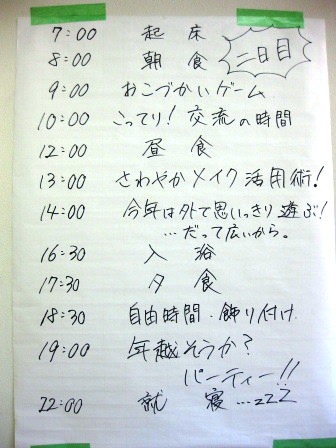 二日目
7:00 起床
8:00 朝食
9:00 おこづかいゲーム
10:00 こってり!交流の時間
12:00 昼食
13:00 さわやかメイク活用術!
14:00 今年は外で思いっきり遊ぶ!
…だって広いから。
16:30 入浴
17:30 夕食
18:30 自由時間・飾り付け
19:00 年越そうか?
パーティー!!
22:00 就寝…zzZ